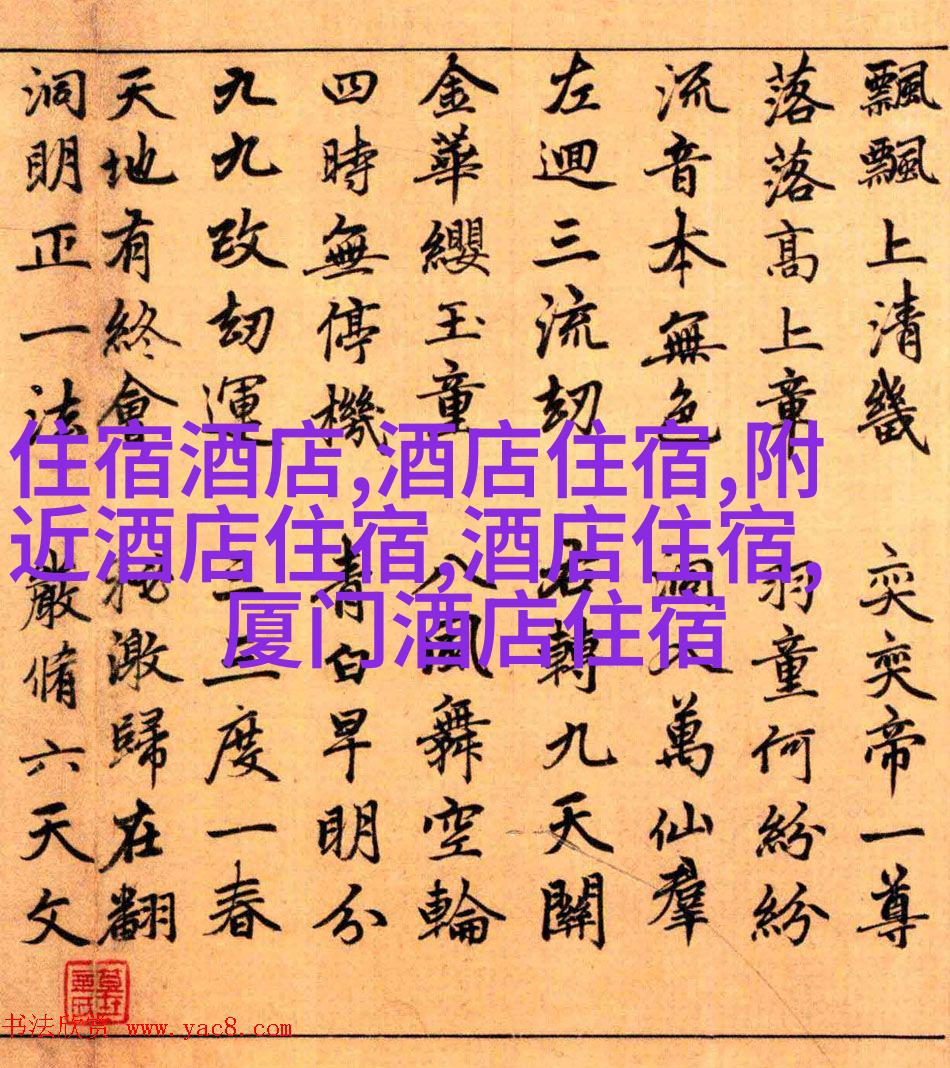 飄飄上清畿 奕奕帝一尊
落落高上章 羽童何紛紛
流音本無色 萬仙羣
左迴三流刼 右轉九天關
金華纓玉童 八風舞空輪
四時無停機 青白早明分
九九改刼運 三三度一春
天地有終會 激歸在翻
洞明正一法 嚴脩六天文
住宿酒店,酒店住宿,附
近酒店住宿,酒店住宿,
厦门酒店住宿
书法欣赏 www.yac8.com